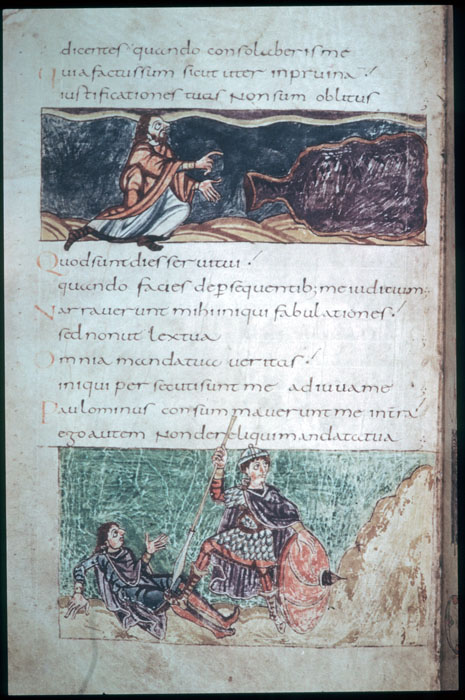 dicentes quando consolaberis me
Quia factus sum sicut uter in pruina
iustificationes tuas non sum oblitus
Quod sunt dies serui tui
quando facies de persequentib; me iuditium
Narrauerunt mihi iniqui fabulationes
sed non ut lex tua
Omnia mandata tua ueritas
iniqui persecuti sunt me adiuua me
Paulominus consummauerunt me in tra
ego autem non dereliqui mandata tua